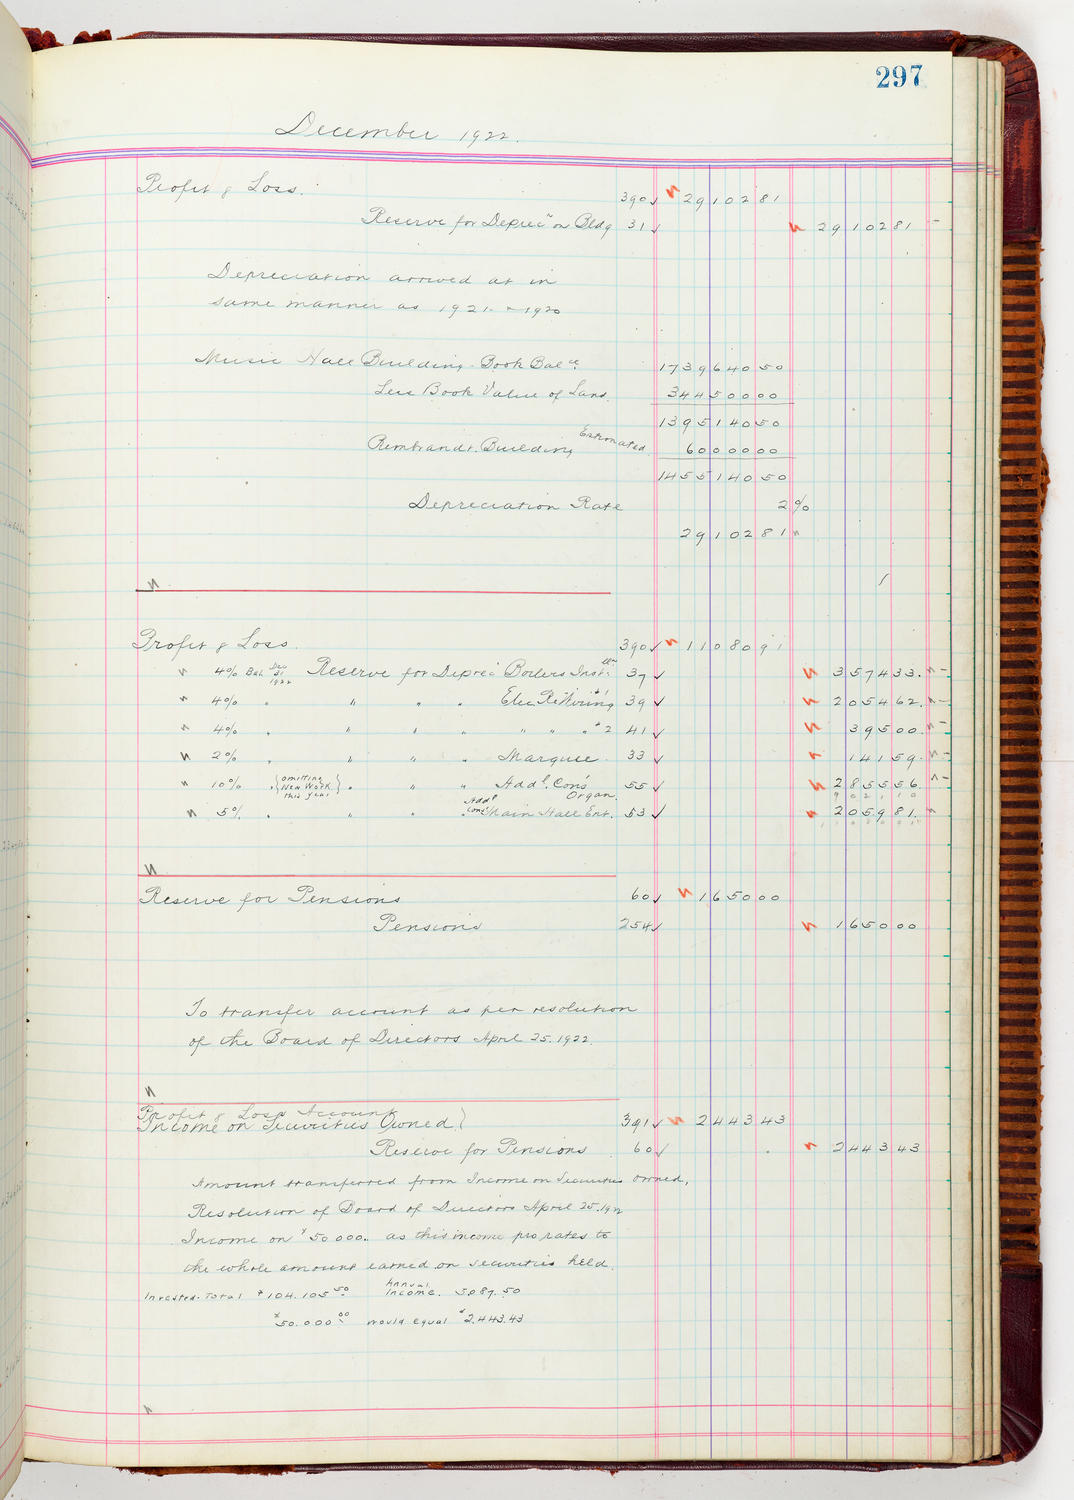 297
December 1922.
Profit & Loss. 390 ✓ 29102 81
Reserve for Deprec'n on Bldg 31 ✓ 29102 81
Depreciation arrived at in
same manner as 1921 - 1920
Music Hall Building - Book Balce 1739640 50
Less Book Value of Land. 344500 00
1395140 50
Rembrandt Building Estimated 60000 00
1455140 50
Depreciation Rate 2%
29102 81
Profit & Loss. 390 ✓ 11080 91
4% Bal. Dec 31 1922 Reserve for Deprec' Boilers Installn 37 ✓ 3574 33.
4% " " " " Elec. ReWiring #1 39 ✓ 2054 62.
4% " " " " " " " #2 41 ✓ 395 00.
2% " " " " Marquise 33 ✓ 141 59.
10% " {omitting New Work this year} " " " Addl. Cons' Organ. 55 ✓ 2855 56.
9021 10
5% " " " " Addl Cons' Main Hall Ent. 53 ✓ 2059 81.
Reserve for Pensions 60 ✓ 1650 00
Pensions 254 ✓ 1650 00
To transfer account as per resolution
of the Board of Directors April 25. 1922.
Profit & Loss Account
Income on Securities Owned } 391 ✓ 2443 43
Reserve for Pensions 60 ✓ 2443 43
Amount transferred from Income on Securities owned,
Resolution of Board of Directors April 25. 1922
Income on $50 000.. as this income pro rates to
the whole amount earned on securities held.
Invested. Total $104,105 50 Annual Income. 5087.50
$50.000 00 would equal $2,443.43